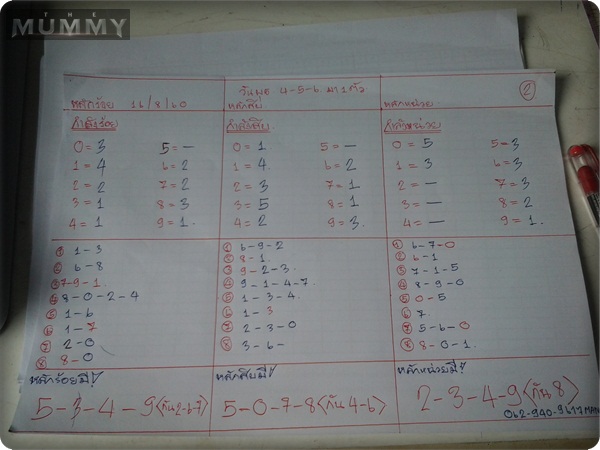 THE
MUMMY
วันพุธ 4-5-6 มา 1 ตัว
2
หลักร้อย 16/8/60 หลักสิบ หลักหน่วย
กำลังร้อย กำลังสิบ กำลังหน่วย
0 = 3 5 = – 0 = 1 5 = – 0 = 5 5 = 3
1 = 4 6 = 2 1 = 4 6 = 2 1 = 3 6 = 3
2 = 2 7 = 2 2 = 3 7 = 1 2 = – 7 = 3
3 = 1 8 = 3 3 = 5 8 = 1 3 = – 8 = 2
4 = 1 9 = 1. 4 = 2 9 = 3. 4 = – 9 = 1.
① 1-3 ① 6-9-2 ① 6-7-0
② 6-8 ② 8-1. ② 6-1
③ 7-9-1. ③ 9-2-3. ③ 7-1-5
④ 8-0-2-4 ④ 9-1-4-7. ④ 8-9-0
⑤ 1-6 ⑤ 1-3-4. ⑤ 0-5
⑥ 1-7 ⑥ 1-3 ⑥ 7
⑦ 2-0 ⑦ 2-3-0 ⑦ 5-6-0
⑧ 8-0 ⑧ 3-6- ⑧ 8-0-1.
หลักร้อยมี! หลักสิบมี! หลักหน่วยมี!
5-3-4-9 (กัน 2-6-7) 5-0-7-8 (กัน 4-6) 2-3-4-9 (กัน 8)
062-940-9617 MAN